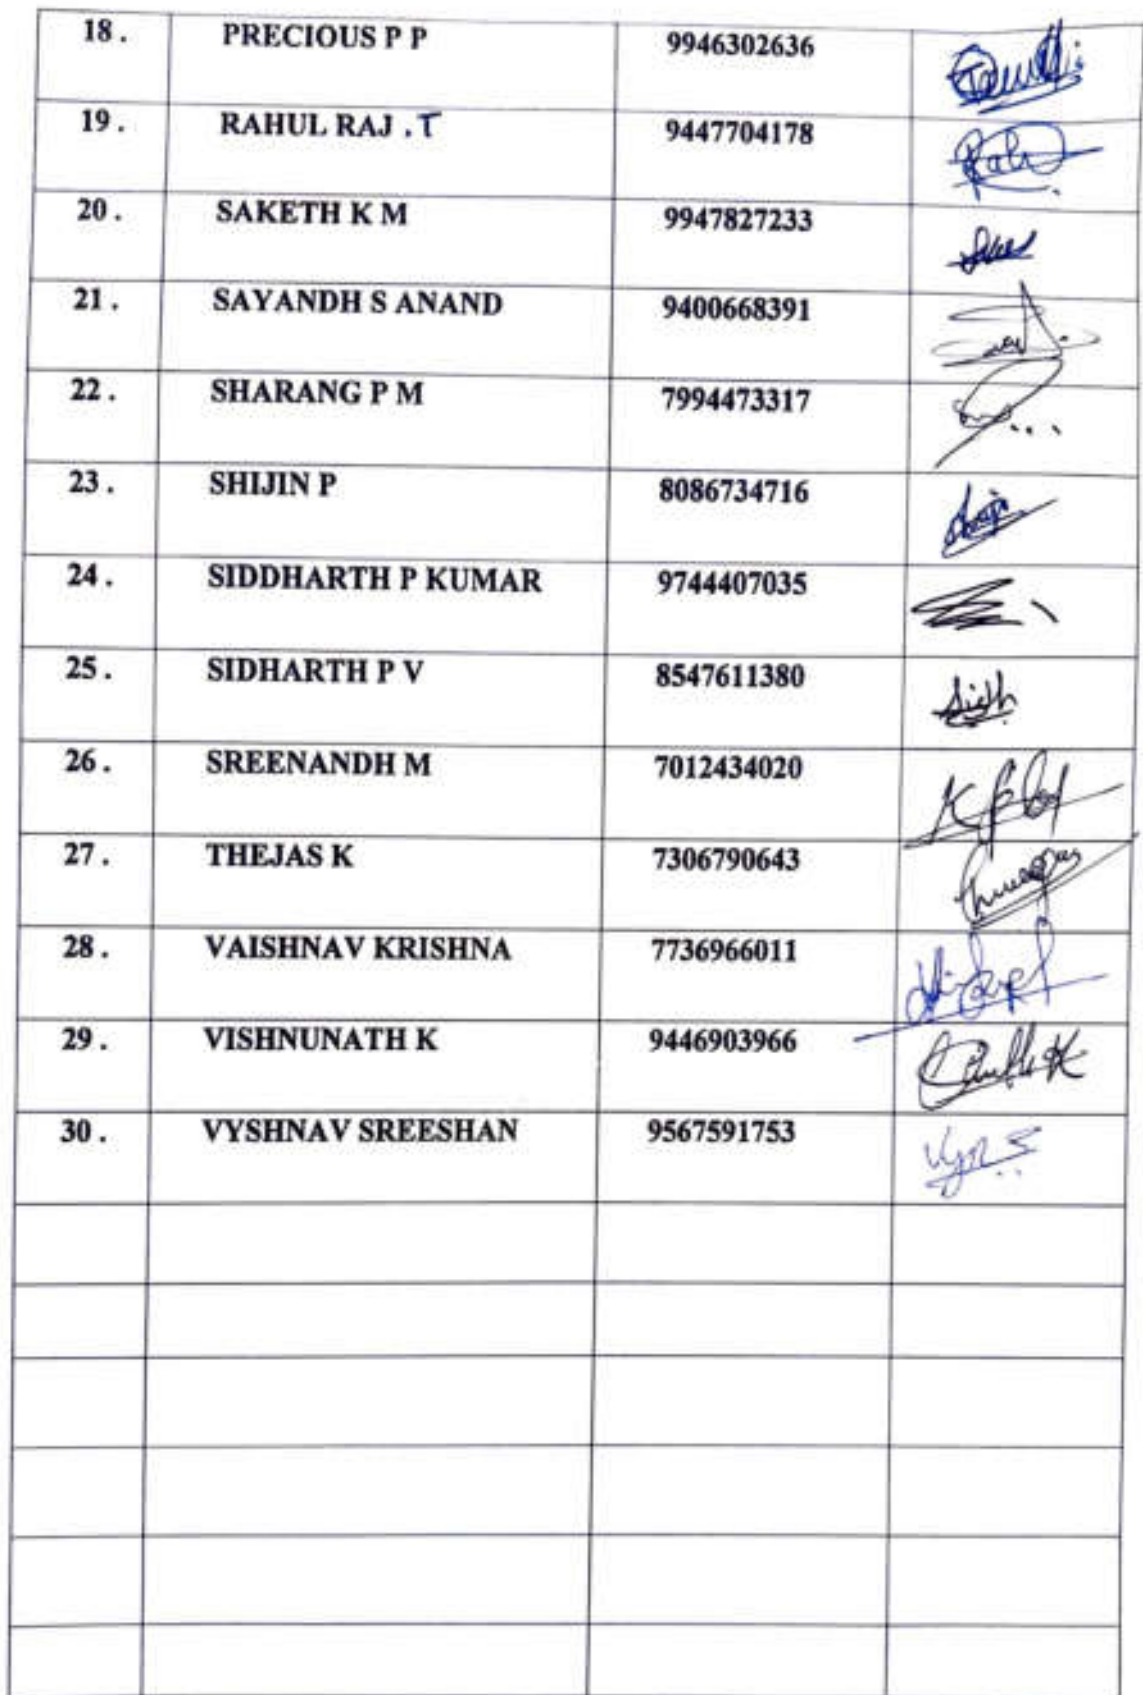 18 . PRECIOUS P P 9946302636
19 . RAHUL RAJ . T 9447704178
20 . SAKETH K M 9947827233
21 . SAYANDH S ANAND 9400668391
22 . SHARANG P M 7994473317
23 . SHIJIN P 8086734716
24 . SIDDHARTH P KUMAR 9744407035
25 . SIDHARTH P V 8547611380
26 . SREENANDH M 7012434020
27 . THEJAS K 7306790643
28 . VAISHNAV KRISHNA 7736966011
29 . VISHNUNATH K 9446903966
30 . VYSHNAV SREESHAN 9567591753